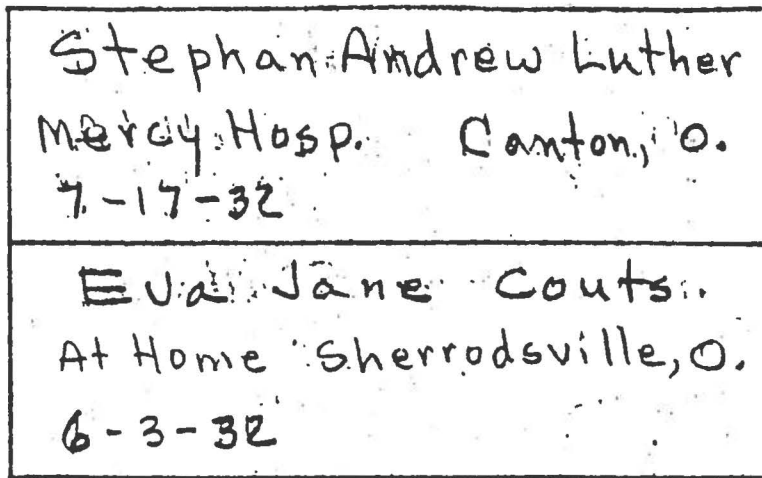 Stephan Andrew Luther
Mercy Hosp. Canton, O.
7-17-32
Eva Jane Couts.
At Home Sherrodsville, O.
6-3-32